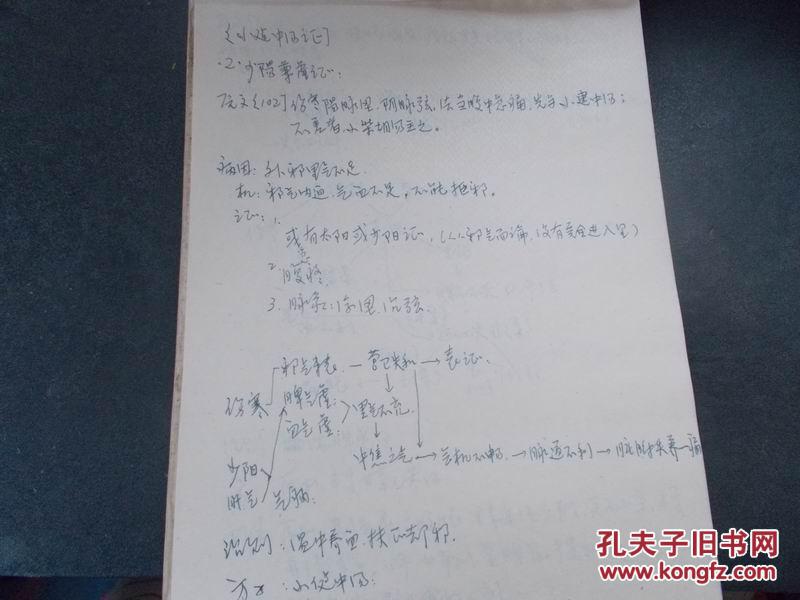 {小建中汤证}
.2. 少阳兼虚证:
原文{102}伤寒阳脉涩,阴脉弦,法当腹中急痛,先与小建中汤;
不差者,小柴胡汤主之。
病因: 外邪里气不足.
机: 邪气内迫、气血不足,不能拒邪。
证: 1. 或有太阳或少阳证,(从邪气而论,没有完全进入里)
2. 腹痛
3. 脉象: 浮涩,沉弦.
邪气束表 — 营卫失和 → 表证.
伤寒
脾气虚
血气虚
里气不充.
中焦之气 → 气机不畅 → 脉道不利 → 失养—痛
少阳
肝气
治则: 温中养血,扶正却邪.
方: 小建中汤:
孔夫子旧书网
www.kongfz.com